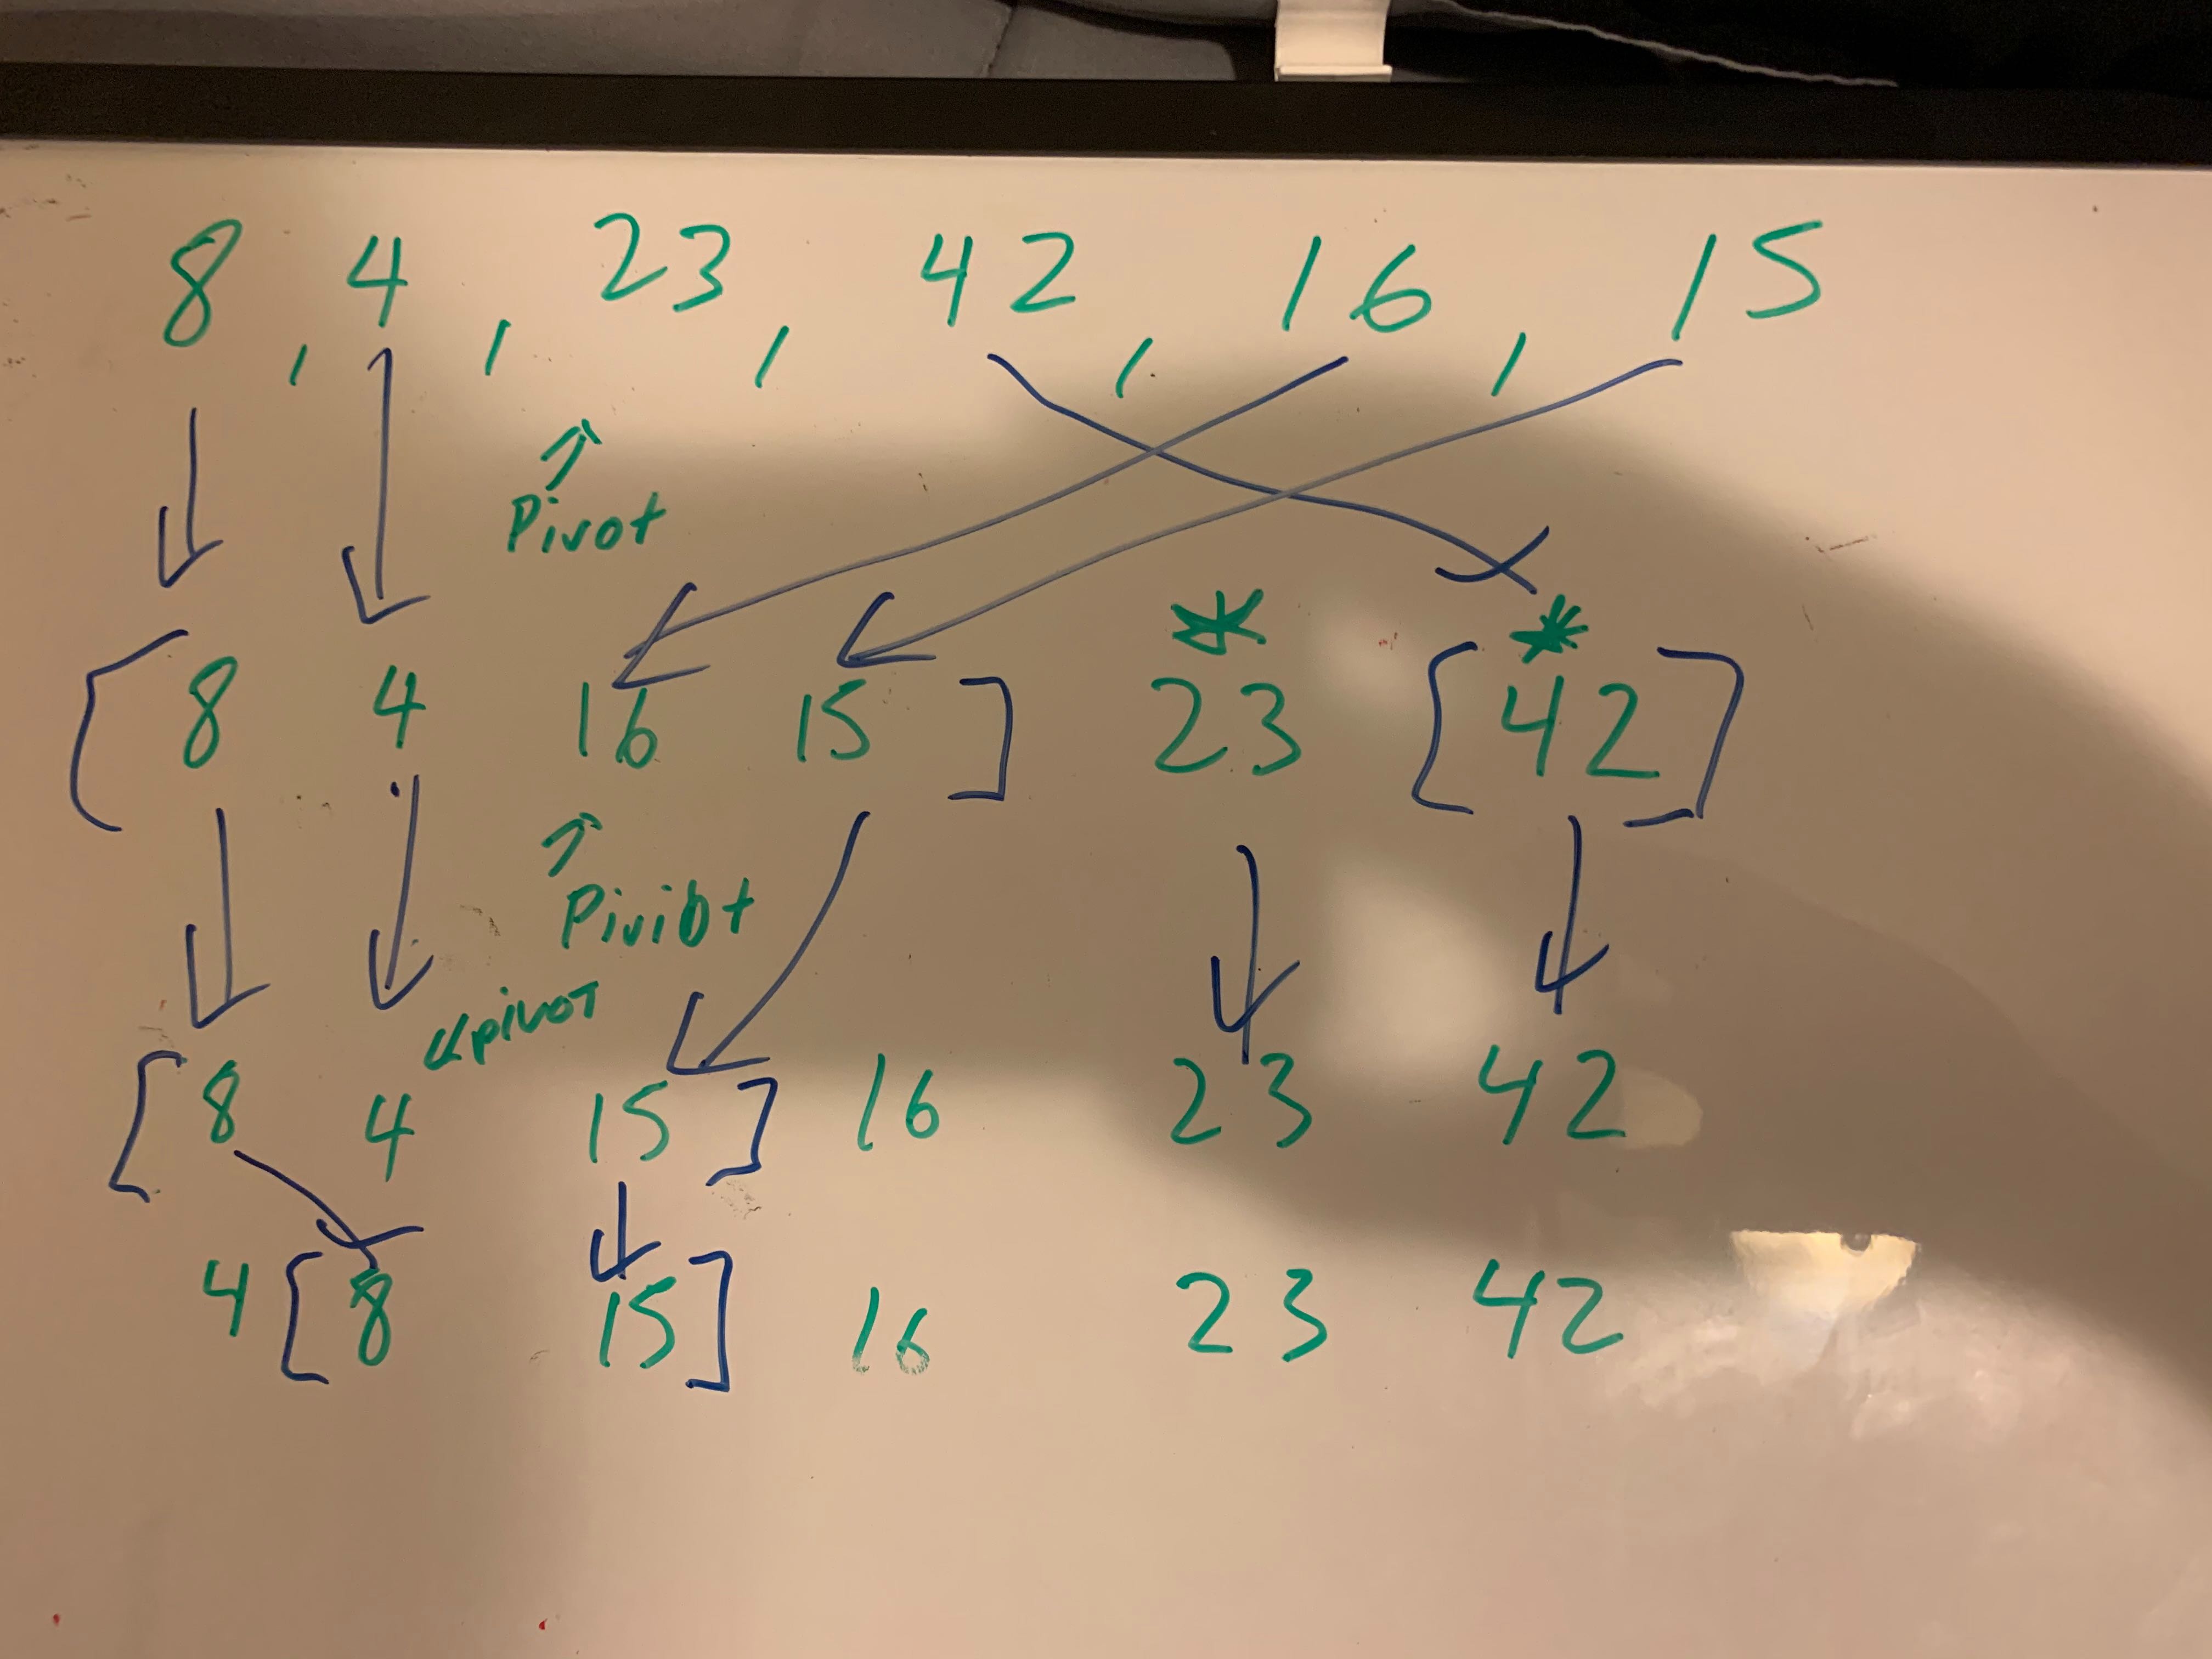 8, 4, 23, 42, 16, 15
Pivot
* *
[8 4 16 15] 23 [42]
Pivibt
pivot
[8 4 15] 16 23 42
4 [8 15] 16 23 42